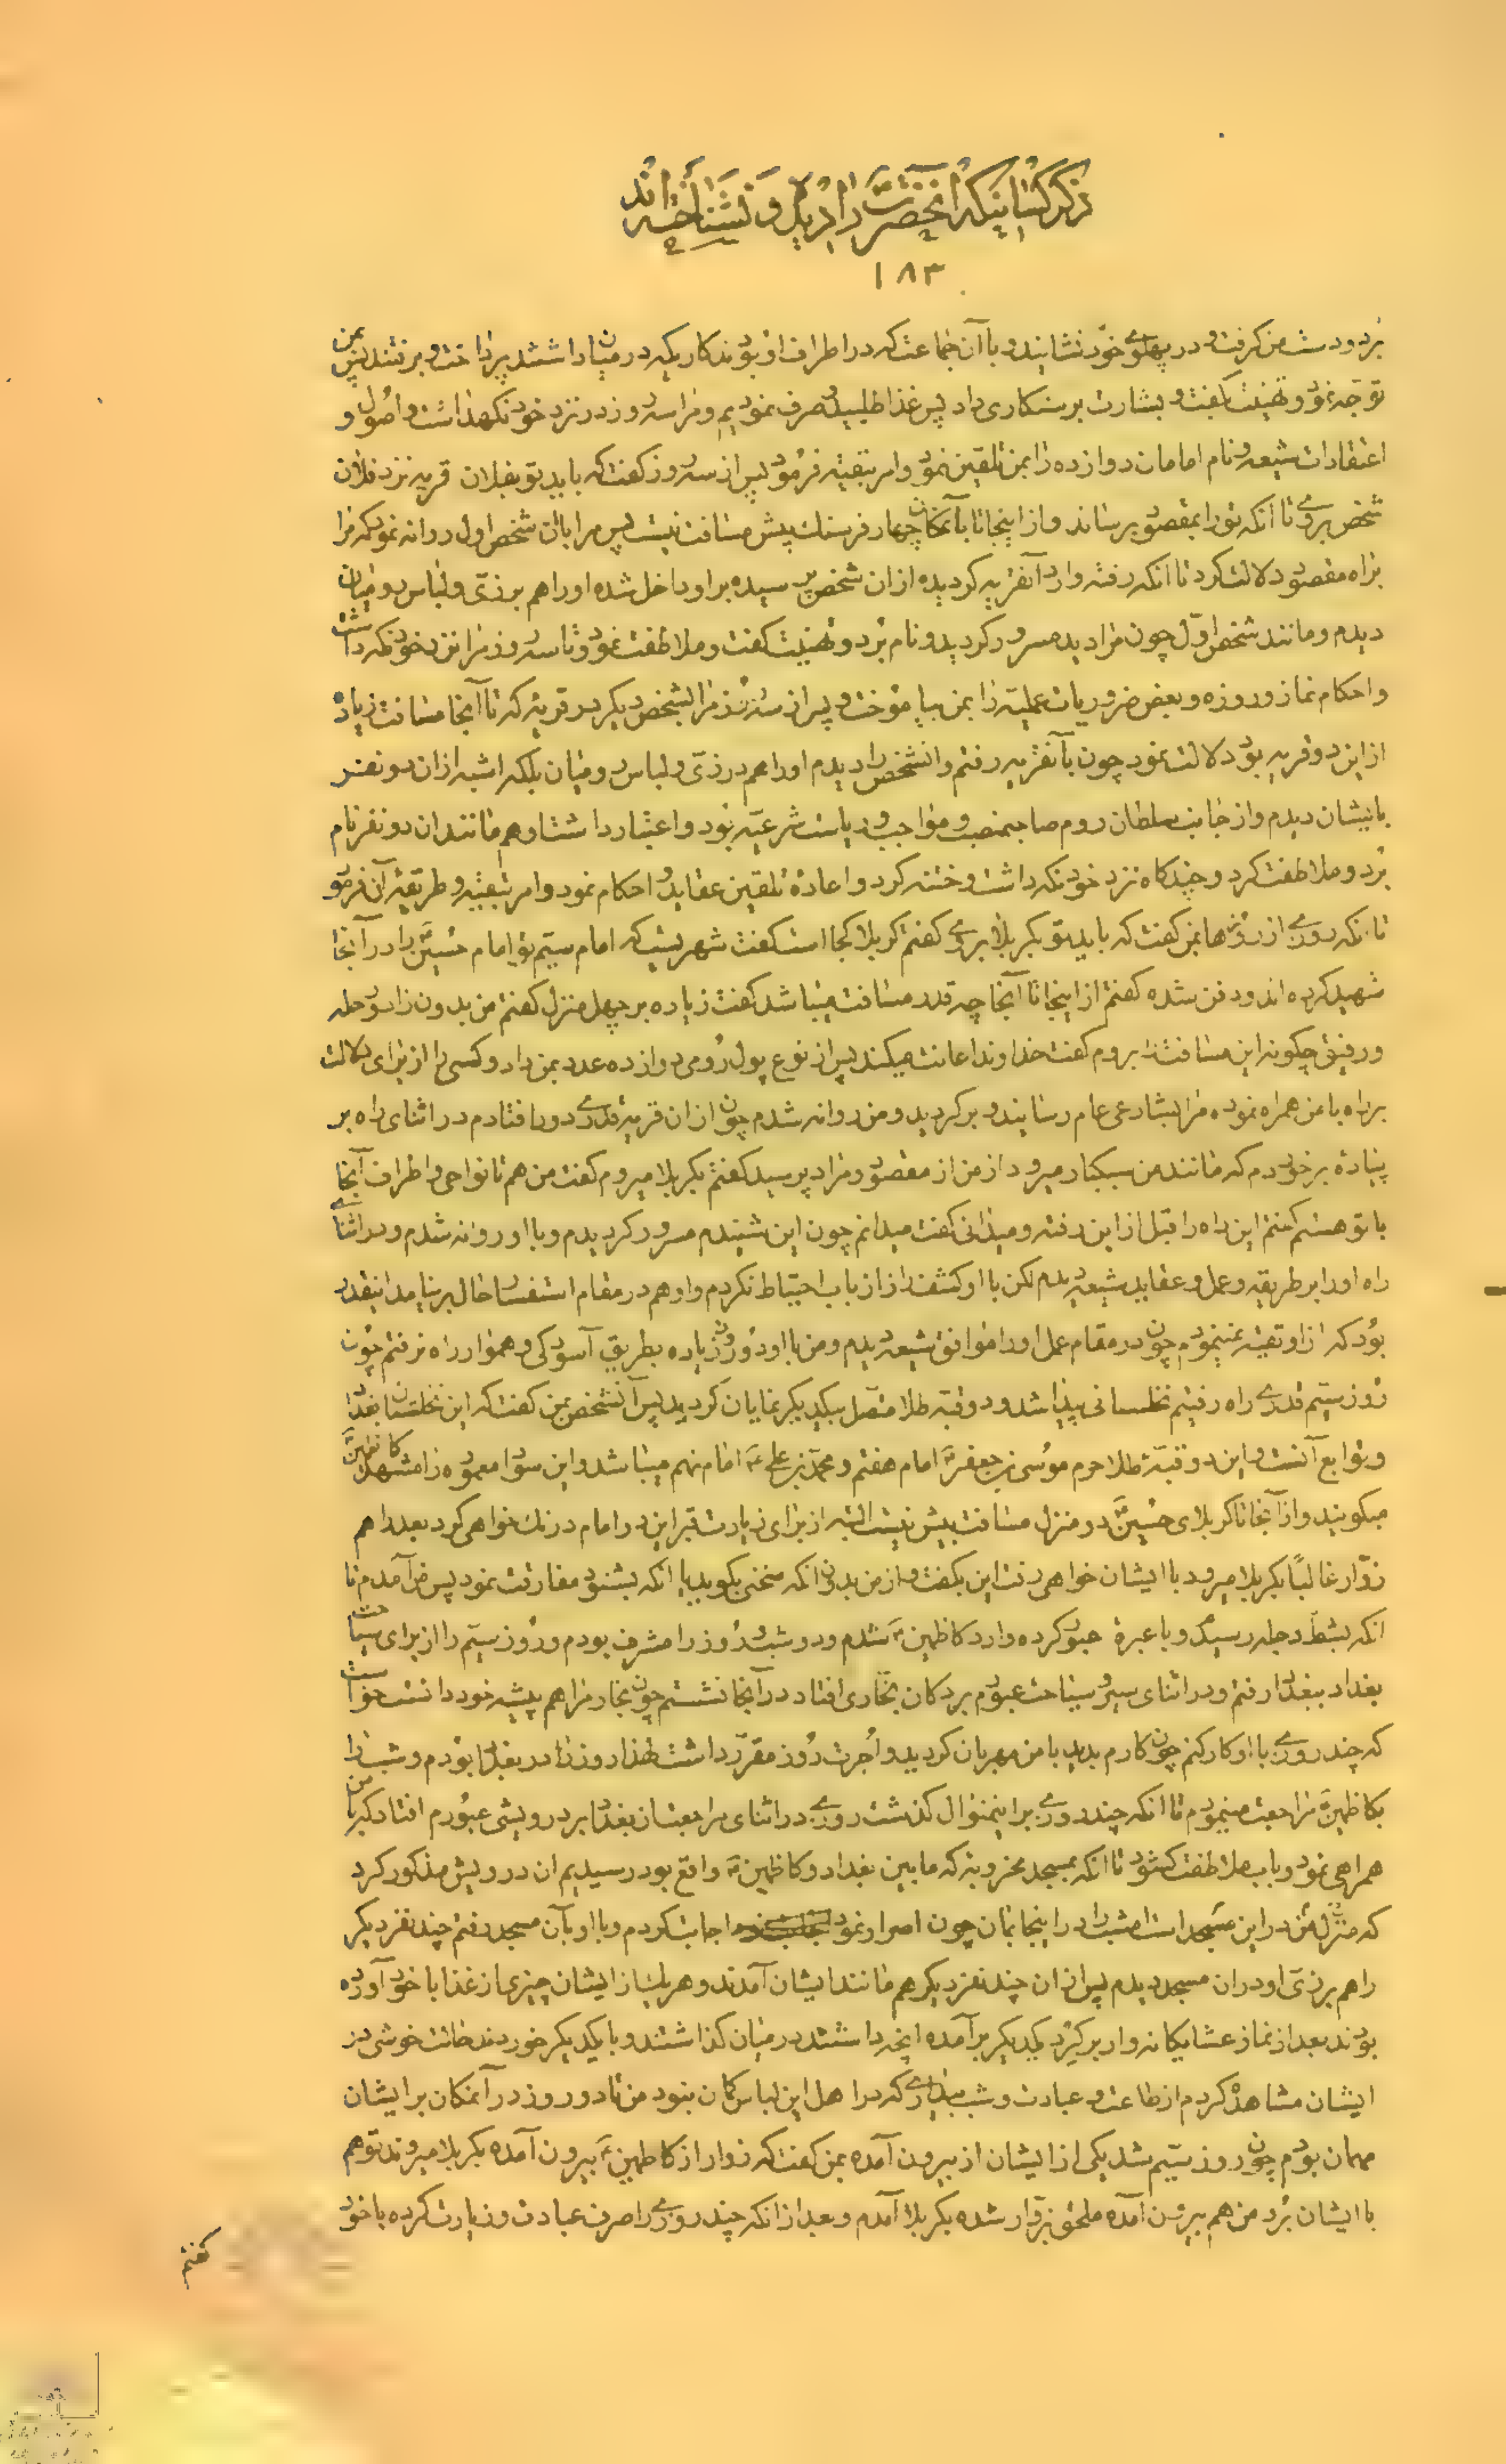 ذکر کسانیکه آنحضرت را دیده و نشناخته اند
۱۸۳
برد و دست من گرفت و در پهلوی خود نشانید و با آن جماعت که در اطراف او بودند کاریکه در میان داشتند پرداخت و برفتند پس بمن
توجه نمود و تهنیت گفت و بشارت برستکاری داد پس غذا طلبید و صرف نمودیم و مرا سه روز در نزد خود نگهداشت و اصول و
اعتقادات شیعه و نام امامان دوازده را بمن تلقین نمود و امر بتقیه فرمود پس از سه روز گفت که باید تو بفلان قریه نزد فلان
شخص بروی تا آنکه تو را بمقصود برساند و از اینجا تا بآنمکان چهار فرسنک پیش مسافت نیست پس مرا بآن شخص اول روانه نمود که مرا
براه مقصود دلالت کرد تا آنکه رفته وارد آنقریه گردیده از آن شخص پرسیده بر او داخل شده او را هم بر زیّ و لباس رومیان
دیدم و مانند شخص اوّل چون مرا دید مسرور گردید و نام برد و تهنیت گفت و ملاطفت نمود و تا سه روز مرا نزد خود نگه داشت
و احکام نماز و روزه و بعض ضروریات عملیّه را بمن بیاموخت و پس از سه روز مرا بشخص دیگر در قریه که تا آنجا مسافت زیاد
از این دو قریه بود دلالت نمود چون بآنقریه رفتم و آنشخص را دیدم او را هم در زیّ و لباس رومیان بلکه اشبه از آن دو نفر
بایشان دیدم و از جانب سلطان روم صاحبمنصب و مواجب و ریاست شرعیّه بود و اعتبار داشت او هم مانند آن دو نفر نام
برد و ملاطفت کرد و چندگاه نزد خود نگه داشت و ختنه کرد و اعادهٔ تلقین عقاید و احکام نمود و امر بتقیه و طریقهٔ آن فرمود
تا آنکه روزی از روزها بمن گفت که باید تو بکربلا بروی گفتم کربلا کجا است گفت شهریست که امام سیّم تو امام حسینؑ را در آنجا
شهید کرده اند و دفن شده گفتم از اینجا تا آنجا چه قدر مسافت میباشد گفت زیاده بر چهل منزل گفتم من بدون زاد و راحله
و رفیق چگونه این مسافت را بروم گفت خداوند اعانت میکند پس از نوع پول رومی دوازده عدد بمن داد و کسی را از برای دلالت
براه با من همراه نموده مرا بشارع عام رسانیده و برگردید و من روانه شدم چون از آن قریه قدری دور افتادم در اثنای راه بر
پیادهٔ برخوردم که مانند من سبکبار میرود از من از مقصود و مراد پرسید گفتم بکربلا میروم گفت من هم تا نواحی و اطراف آنجا
با تو هستم گفتم این راه را قبل از این رفته و میدانی گفت میدانم چون این شنیدم مسرور گردیدم و با او روانه شدم و در اثنای
راه او را بر طریقه و عمل و عقاید شیعه دیدم لکن با او کشف راز از باب احتیاط نکردم و او هم در مقام استفسار حال بر نیامد اینقدر
بود که از او تقیه نمینمودم چون در مقام عمل او را موافق شیعه دیدم و من با او دو روز زیاده بطریق آسودگی و هموار راه نرفتم چون
روز سیّم قدری راه رفتیم نخلستانی پیدا شد و دو قبّه طلا متصل بیکدیگر نمایان گردید پس آنشخص بمن گفت که این نخلستان بغداد
و توابع آنست و این دو قبّهٔ طلا حرم موسی بن جعفرؑ امام هفتم و محمد بن علیؑ امام نهم میباشد و این سواد معموره را مشهد کاظمینؑ
میگویند و از آنجا تا کربلای حسینؑ دو منزل مسافت بیش نیست البته از برای زیارت قبر این دو امام درنک خواهی کرد بعد از اهم
زوّار غالباً بکربلا میرود با ایشان خواهی رفت این بگفت و از من بدون آنکه سخنی بگوید یا آنکه بشنود مفارقت نمود پس من آمدم تا
آنکه بشطّ دجله رسیده و با عبره عبور کرده وارد کاظمینؑ شدم و دو شب و روز را مشرف بودم و روز سیّم را از برای سیاحت
بغداد ببغداد رفتم و در اثنای سیر و سیاحت عبورم بر دکان نجاری افتاد در آنجا نشستم چون نجار مرا هم پیشه خود دانست خواست
که چند روزی با او کار کنم چون کارم بدید با من مهربان گردید و اُجرت روز مقرّر داشت لهذا روزها در بغداد بودم و شب را
بکاظمینؑ مراجعت مینمودم تا آنکه چند روزی بر اینمنوال گذشت روزی در اثنای مراجعت از بغداد بر درویشی عبورم افتاد که با من
همراهی نمود و باب ملاطفت گشود تا آنکه بمسجد مخروبه که مابین بغداد و کاظمینؑ واقع بود رسیدیم آن درویش مذکور کرد
که منزل من در این مسجد است امشب را در اینجا بمان چون اصرار نمود اجابت کردم و با او بآن مسجد رفتم چند نفر دیگر
را هم بر زیّ او در آن مسجد دیدم پس از آن چند نفر دیگر هم مانند ایشان آمدند و هر یک از ایشان چیزی از غذا با خود آورده
بودند بعد از نماز عشا یگانه وار بر گرد یکدیگر برآمده آنچه داشتند در میان گذاشتند و با یکدیگر خوردند حالت خوشی در
ایشان مشاهده کردم از طاعت و عبادت و شب بیداری که در اهل این لباس گمان نبود من تا دو روز در آنمکان بر ایشان
مهمان بودم چون روز سیّم شد یکی از ایشان از بیرون آمده بمن گفت که زوار از کاظمینؑ بیرون آمده بکربلا میروند تو هم
با ایشان برو من هم بیرون آمده ملحق بزوّار شده بکربلا آمدم و بعد از آنکه چند روزی را صرف عبادت و زیارت کرده با خود
گفتم